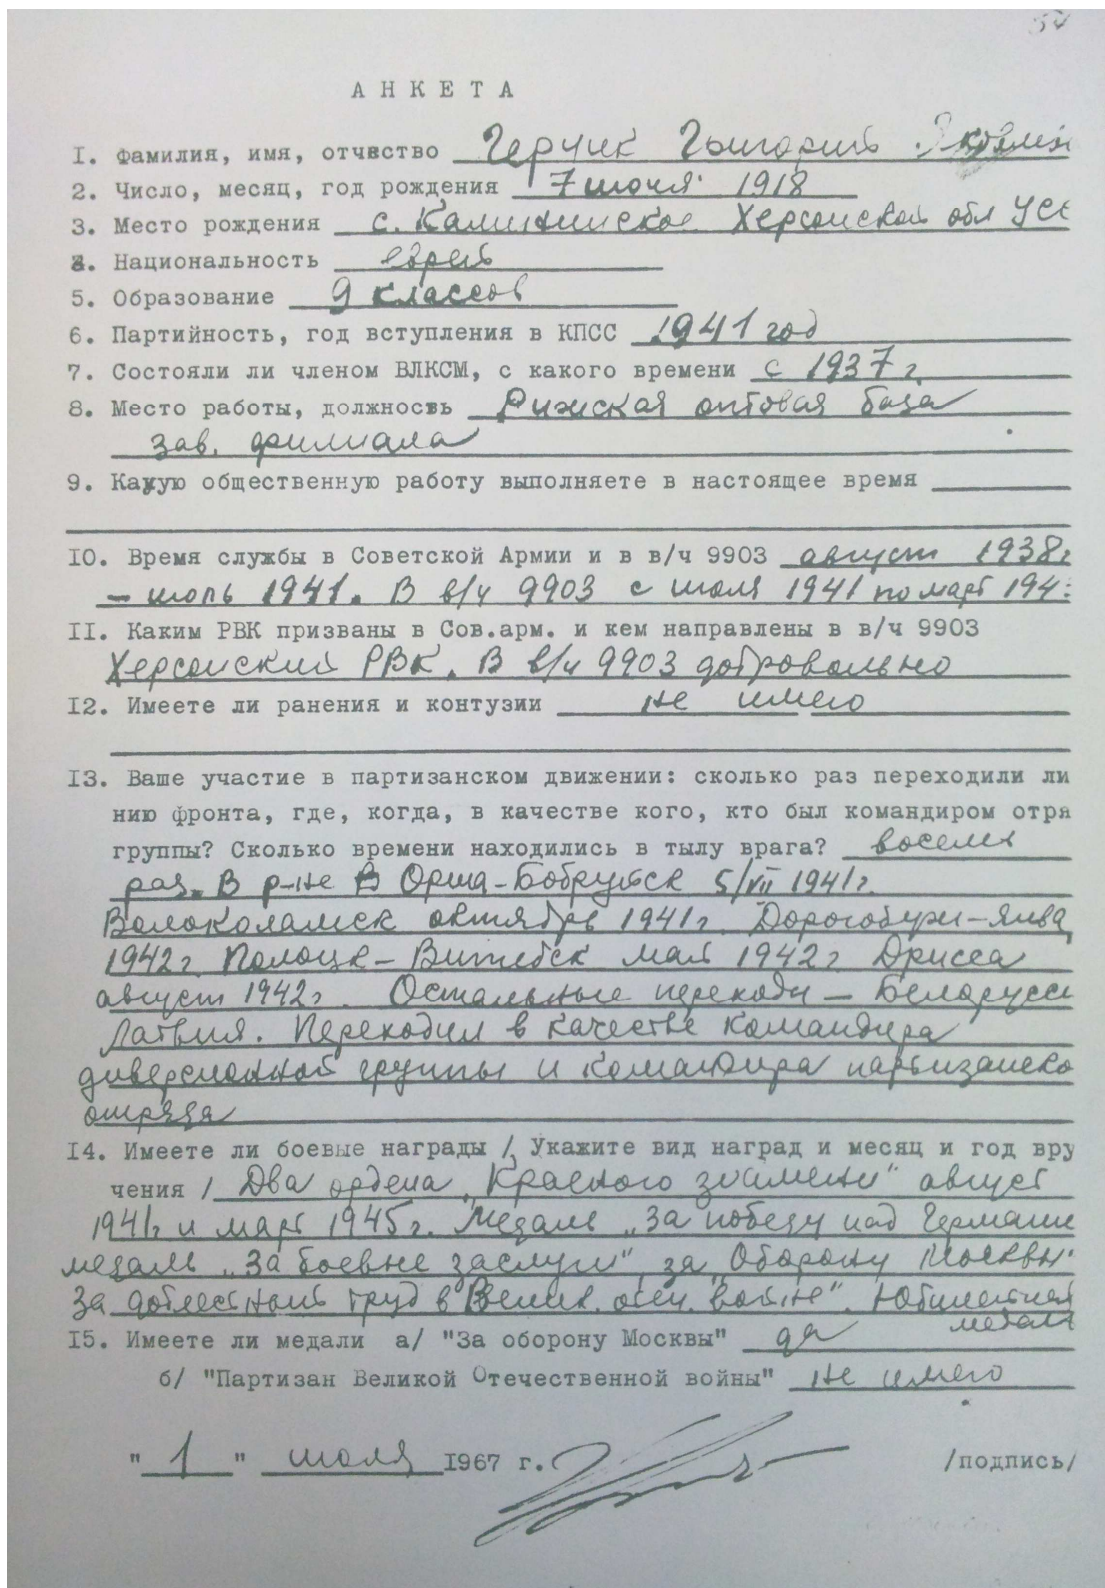 А Н К Е Т А
I. Фамилия, имя, отчество Герчик Григорий
2. Число, месяц, год рождения 7 июня 1918
3. Место рождения с. Калининское Херсонской обл УСС
4. Национальность еврей
5. Образование 9 классов
6. Партийность, год вступления в КПСС 1941 год
7. Состояли ли членом ВЛКСМ, с какого времени с 1937 г.
8. Место работы, должность Рижская оптовая база
зав. филиала
9. Какую общественную работу выполняете в настоящее время
10. Время службы в Советской Армии и в в/ч 9903 август 1938г
– июль 1941. В в/ч 9903 с июля 1941 по март 194
II. Каким РВК призваны в Сов.арм. и кем направлены в в/ч 9903
Херсонский РВК. В в/ч 9903 добровольно
I2. Имеете ли ранения и контузии не имею
I3. Ваше участие в партизанском движении: сколько раз переходили ли
нию фронта, где, когда, в качестве кого, кто был командиром отря
группы? Сколько времени находились в тылу врага? восемь
раз. В р-не Орша-Бобруйск 5/VII 1941г.
Волоколамск октябрь 1941г. Дорогобуж-янва
1942г. Полоцк-Витебск май 1942г Дрисса
август 1942г. Остальные переходы – Белорусси
Латвия. Переходил в качестве командира
диверсионной группы и командира партизанско
отряда
I4. Имеете ли боевые награды /. Укажите вид наград и месяц и год вру
чения / Два ордена „Красного знамени" август
1941г и март 1945г. Медаль „За победу над Германи
медаль „За боевые заслуги", за „Оборону Москвы"
За доблестный труд в Велик. отеч. войне". Юбилейная
медаль
I5. Имеете ли медали а/ "За оборону Москвы" да
б/ "Партизан Великой Отечественной войны" не имею
" 1 " июля I967 г. /подпись/